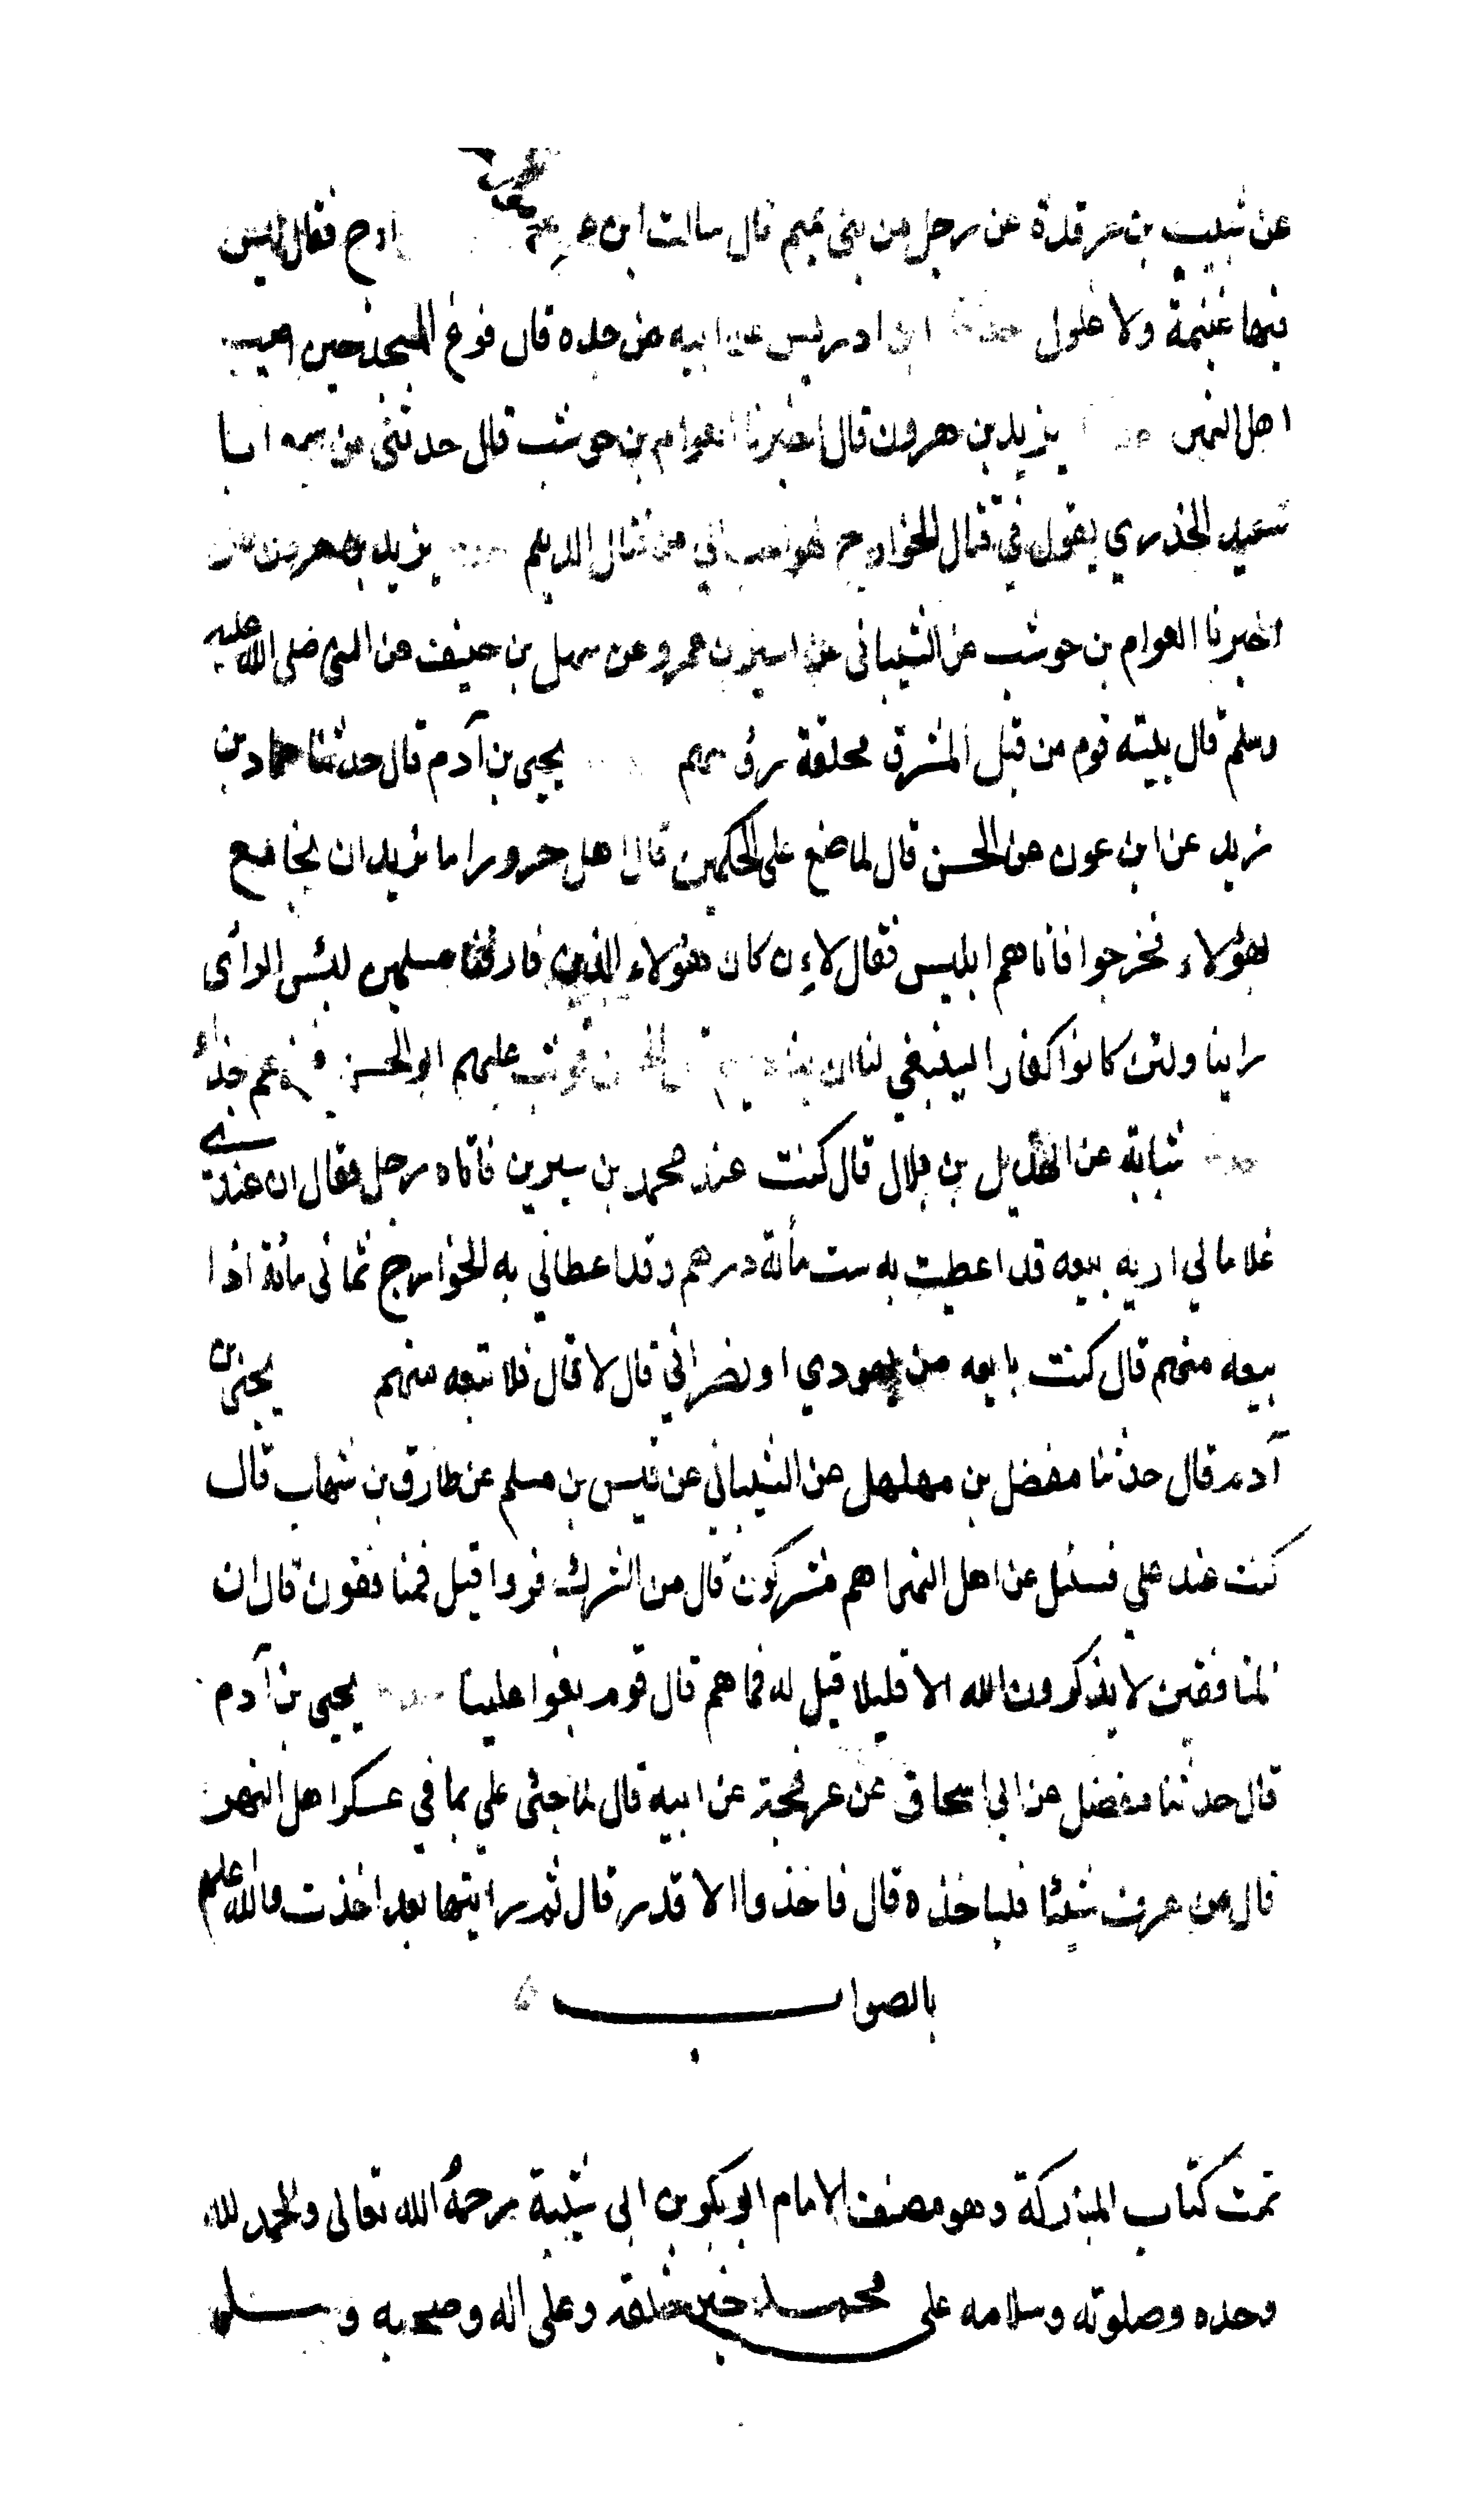 عن شبيب بن غرقدة عن رجل من بني تميم قال سالت ابن عمر فقال ليس
فيها غنيمة ولا غلول ابن ادريس عن ابيه عن جده قال فزع المسجد حين اصيب
اهل النهر يزيد بن هرون قال اخبرنا العوام بن حوشب قال حدثني من سمع ابا
سعيد الخدري يقول في قتال الخوارج لهو احب الي من قتال الديلم يزيد بن هرون قال
اخبرنا العوام بن حوشب عن الشيباني عن اسير بن عمرو عن سهل بن حنيف عن النبي صلى الله عليه
وسلم قال يليته قوم من قبل المشرق محلقة رؤسهم يحيى بن آدم قال حدثنا حماد بن
زيد عن ابن عون عن الحسن قال لما ضع على الحكمين قال اهل حرورا ما نريد ان نجامع
لهؤلاء فخرجوا فاتاهم ابليس فقال لاءن كان هؤلاء الذين فارقنا مسلمين لبئس الرأى
راينا ولئن كانوا كفارا لينبغي لنا ان قال الحسن فوثب عليهم ابو الحسن
شبابة عن الهذيل بن بلال قال كنت عند محمد بن سيرين فاتاه رجل فقال ان عندي
غلاما لي اريد بيعه قد اعطيت به ست مأة درهم وقد اعطاني به الخوارج ثماني مائة اذا
بيعه منهم قال كنت بايعه من يهودي او نصراني قال لا قال فلا تبعه منهم يحيى بن
آدم قال حدثنا مفضل بن مهلهل عن الشيباني عن قيس بن مسلم عن طارق بن شهاب قال
كنت عند علي فسئل عن اهل النهر اهم مشركون قال من الشرك فروا قيل فمنافقون قال ان
لمنافقين لا يذكرون الله الا قليلا قيل له فما هم قال قوم بغوا علينا يحيى بن آدم
قال حدثنا مفضل عن ابي اسحاق عن عرفجة عن ابيه قال لما جئى علي بما في عسكر اهل النهر
قال من عرف شيئا فلياخذه قال فاخذوا الا قدر قال ثم رايتها بعد اخذت والله اعلم
بالصواب
تمت كتاب المبتركة وهو مصنف الامام ابو بكر بن ابى شيبة رحمه الله تعالى والحمد لله
وحده وصلوته وسلامه على محمد خير خلقه وعلى اله وصحبه وسلم